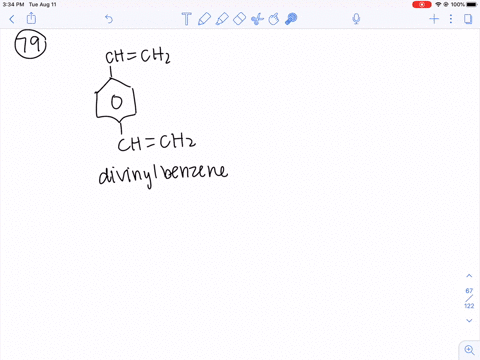 3:34 PM Tue Aug 11
100%
79
CH=CH2
CH=CH2
divinylbenzene
67
122